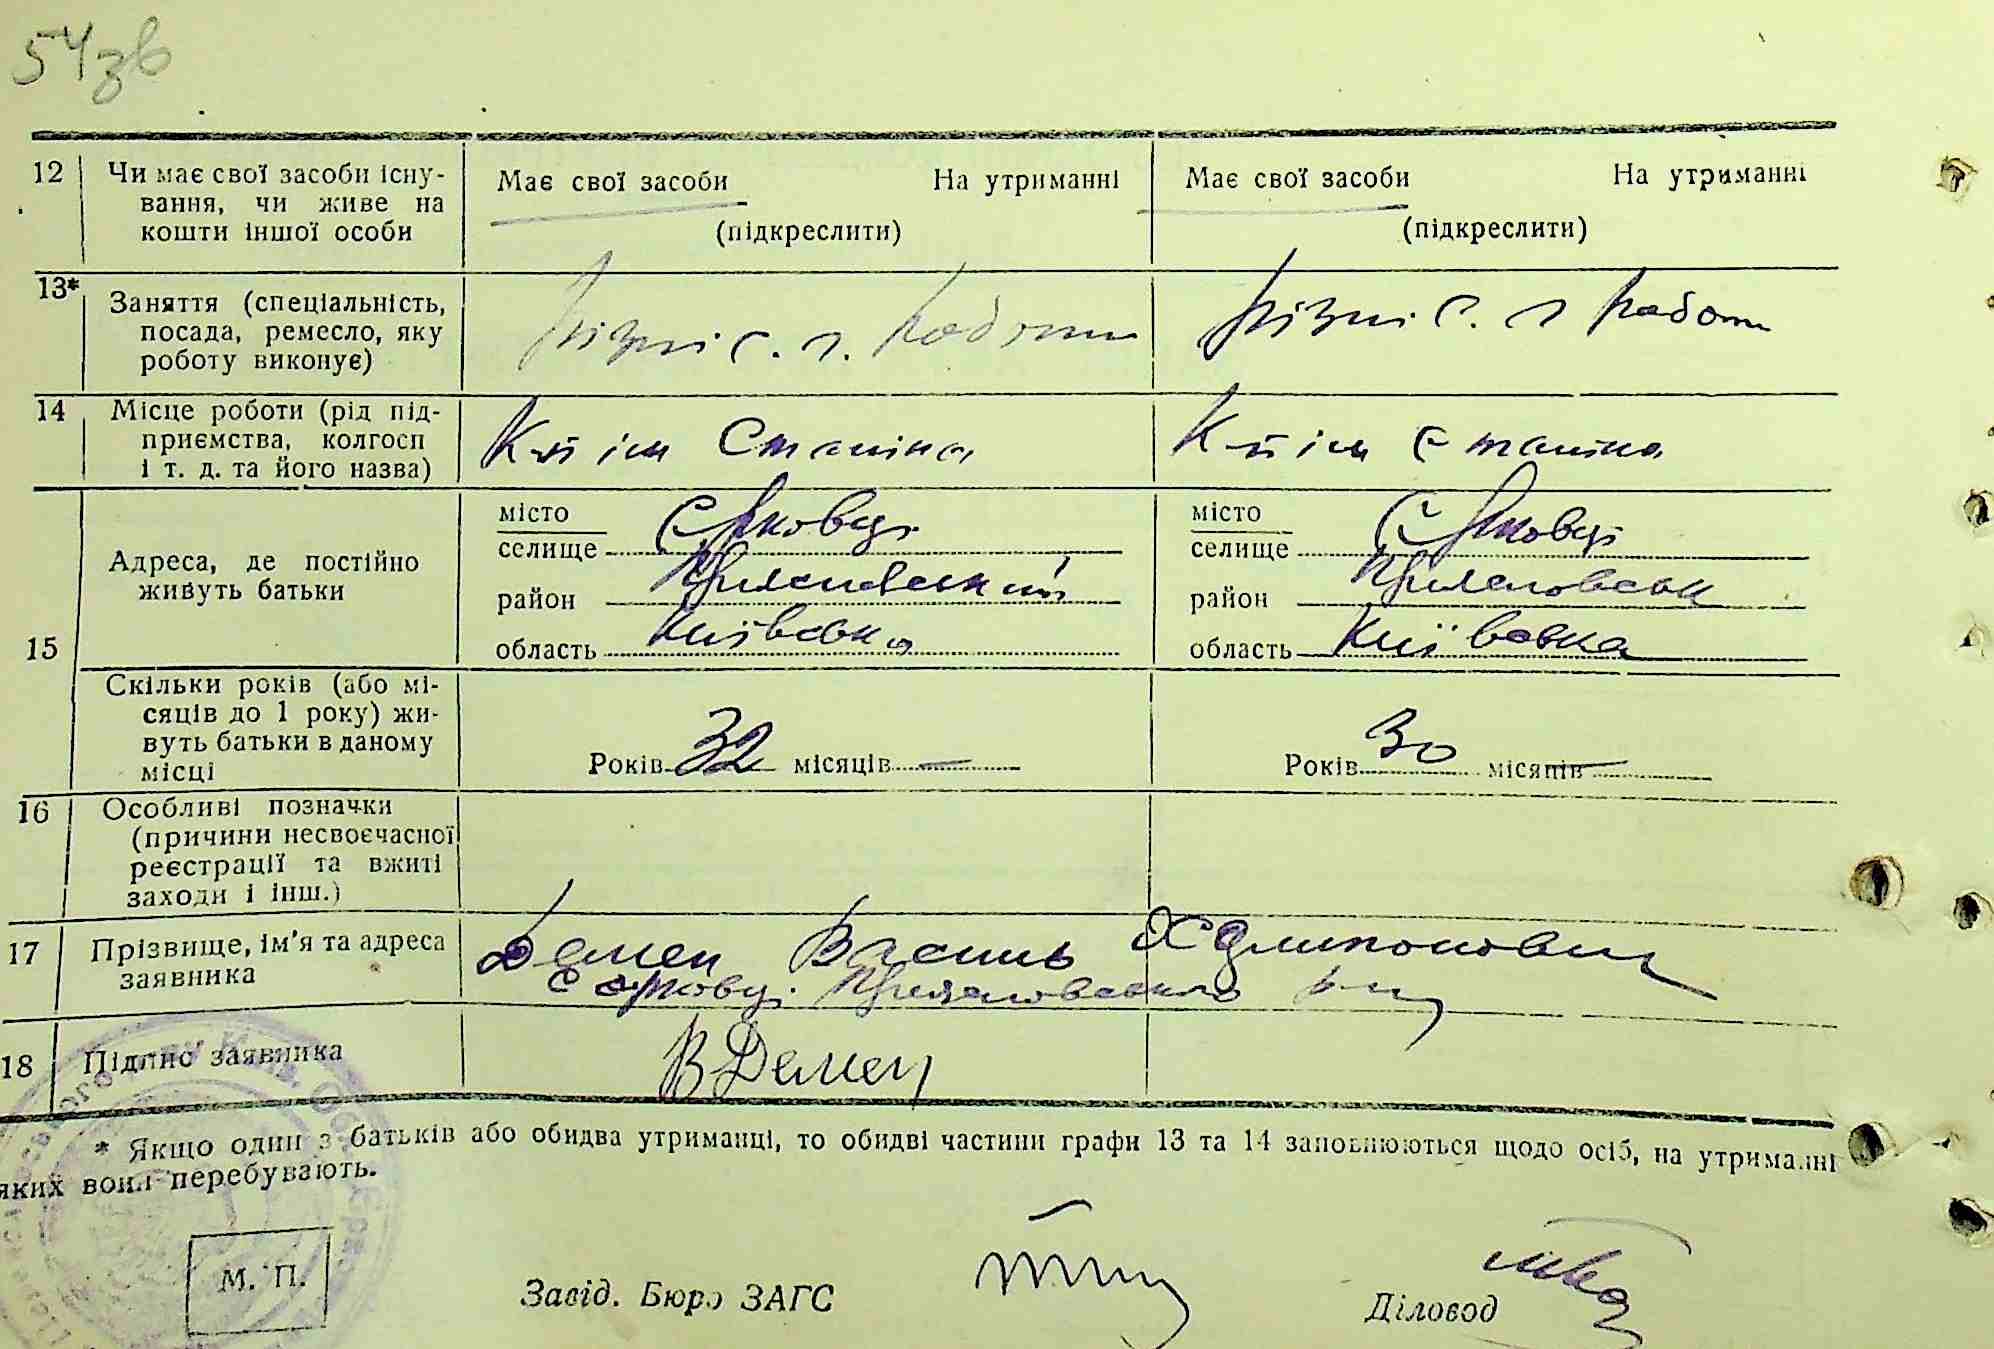 54зв
12 Чи має свої засоби існу-
вання, чи живе на
кошти іншої особи
Має свої засоби На утриманні
(підкреслити)
Має свої засоби На утриманні
(підкреслити)
13* Заняття (спеціальність,
посада, ремесло, яку
роботу виконує)
різні с. г. роботи
різні с. г роботи
14 Місце роботи (рід під-
приємства, колгосп
і т. д. та його назва)
К-п ім Сталіна
К-п ім Сталіна
15 Адреса, де постійно
живуть батьки
місто
селище С Ярковці
район
область Київська
місто
селище С Ярковці
район
область Київська
Скільки років (або мі-
сяців до 1 року) жи-
вуть батьки в даному
місці
Років 32 місяців —
Років 30 місяців —
16 Особливі позначки
(причини несвоєчасної
реєстрації та вжиті
заходи і інш.)
17 Прізвище, ім'я та адреса
заявника
Демен Василь
с Ярковці
18 Підпис заявника
В Демен
* Якщо один з батьків або обидва утриманці, то обидві частини графи 13 та 14 заповнюються щодо осіб, на утриманні
яких вони перебувають.
М. П.
Завід. Бюро ЗАГС
Діловод